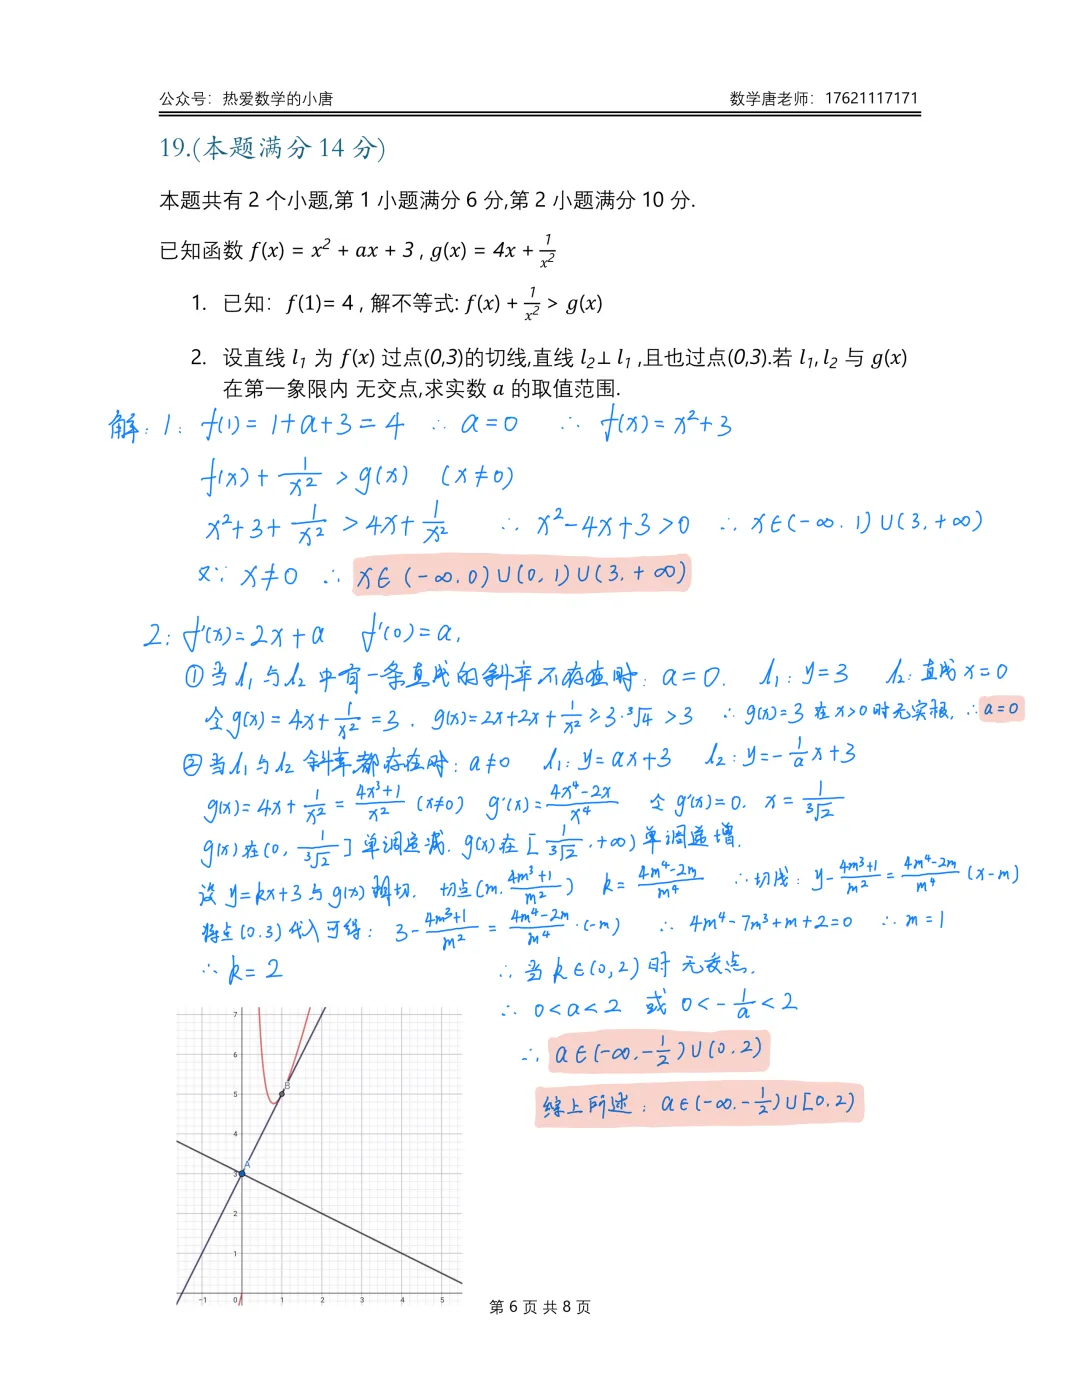 公众号：热爱数学的小唐 数学唐老师：17621117171
19.(本题满分 14 分)
本题共有 2 个小题,第 1 小题满分 6 分,第 2 小题满分 10 分.
已知函数 f(x) = x² + ax + 3 , g(x) = 4x + 1/x²
1. 已知：f(1)= 4 , 解不等式: f(x) + 1/x² > g(x)
2. 设直线 l₁ 为 f(x) 过点(0,3)的切线,直线 l₂⊥ l₁ ,且也过点(0,3).若 l₁, l₂ 与 g(x)
在第一象限内 无交点,求实数 a 的取值范围.
解：1: f(1) = 1+a+3 = 4 ∴ a=0 ∴ f(x)= x²+3
f(x) + 1/x² > g(x) (x≠0)
x²+3+ 1/x² > 4x+ 1/x² ∴ x²-4x+3 >0 ∴ x∈(-∞,1)∪(3,+∞)
又∵ x≠0 ∴ x∈(-∞,0)∪(0,1)∪(3,+∞)
2: f'(x)=2x+a f'(0)=a,
①当 l₁ 与 l₂ 中有一条直线的斜率不存在时: a=0. l₁: y=3 l₂: 直线 x=0
令 g(x) = 4x+ 1/x² =3 . g(x)=2x+2x+ 1/x² ≥3·³√4 >3 ∴ g(x)=3 在 x>0 时无实根, ∴ a=0
②当 l₁ 与 l₂ 斜率都存在时: a≠0 l₁: y=ax+3 l₂: y=- 1/a x+3
g(x)= 4x+ 1/x² = (4x³+1)/x² (x≠0) g'(x)= (4x⁴-2x)/x⁴ 令 g'(x)=0. x= 1/³√2
g(x) 在 (0, 1/³√2 ] 单调递减. g(x) 在 [ 1/³√2 ,+∞) 单调递增.
设 y=kx+3 与 g(x) 相切. 切点(m, (4m³+1)/m² ) k= (4m⁴-2m)/m⁴ ∴切线: y- (4m³+1)/m² = (4m⁴-2m)/m⁴ (x-m)
将点(0.3)代入可得: 3- (4m³+1)/m² = (4m⁴-2m)/m⁴ ·(-m) ∴ 4m⁴-7m³+m+2=0 ∴ m=1
∴ k=2 ∴ 当 k∈(0,2) 时 无交点.
∴ 0<a<2 或 0<- 1/a <2
∴ a∈(-∞,- 1/2 )∪(0,2)
综上所述: a∈(-∞,- 1/2 )∪[0,2)
7
6
5
B
4
A
3
2
1
-1 0 1 2 3 4 5
第 6 页 共 8 页